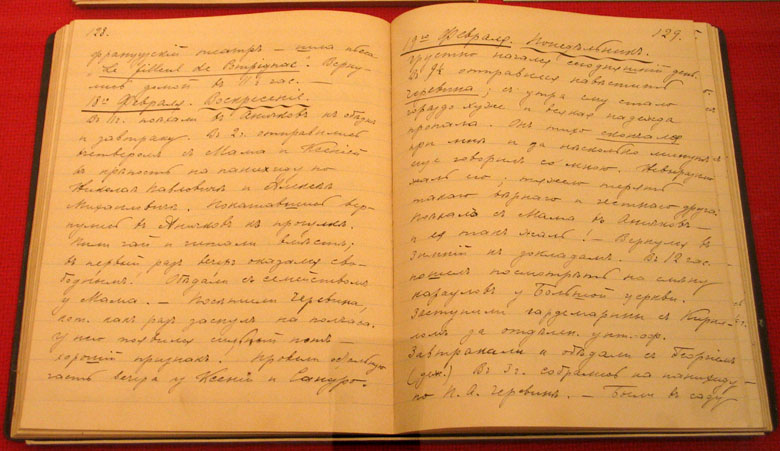 128.
французскій театръ — шла пьеса
"Le filleul de Pompignac". Верну-
лись домой въ 11½ час.
18го Февраля. Воскресеніе.
Въ 11 ч. поѣхали въ Аничковъ къ обѣднѣ
и завтраку. Въ 2 ч. отправились
вчетверомъ съ Мама и Ксеніей
въ крѣпость на панихиду по
Николаѣ Павловичѣ и Алексѣѣ
Михайловичѣ. Покатавшись вер-
нулись въ Аничковъ къ прогулкѣ.
Пили чай и читали вмѣстѣ;
въ первый разъ вечеръ оказался сво-
боднымъ. Обѣдали съ семействомъ
у Мама. — Посѣтили Черевина,
кот. какъ разъ заснулъ на полчаса.
У него появился потъ —
хорошій признакъ. Провели
часть вечера у Ксеніи и Сандро.
129.
19го Февраля. Понедѣльникъ.
Грустно начался сегодняшній день.
Въ 9½ отправился навѣстить
Черевина; съ утра ему стало
гораздо хуже и всякая надежда
пропала. Онъ тихо скончался
при мнѣ и за нѣсколько минутъ
еще говорилъ со мною. Невыразимо
жаль его; тяжело терять
такого вѣрнаго и честнаго друга.
Поѣхалъ съ Мама въ Аничковъ —
и ея такъ жаль! — Вернулся въ
Зимній къ докладамъ. Въ 12 час.
пошелъ посмотрѣть на смѣну
карауловъ у Большой церкви.
Вступили гардемарины съ Кирил-
ломъ за отдѣлен. унт.-оф.
Завтракали и обѣдали съ Георгіемъ
(деж.) Въ 3 ч. собрались на панихиду
по П. А. Черевинѣ. — Были въ саду